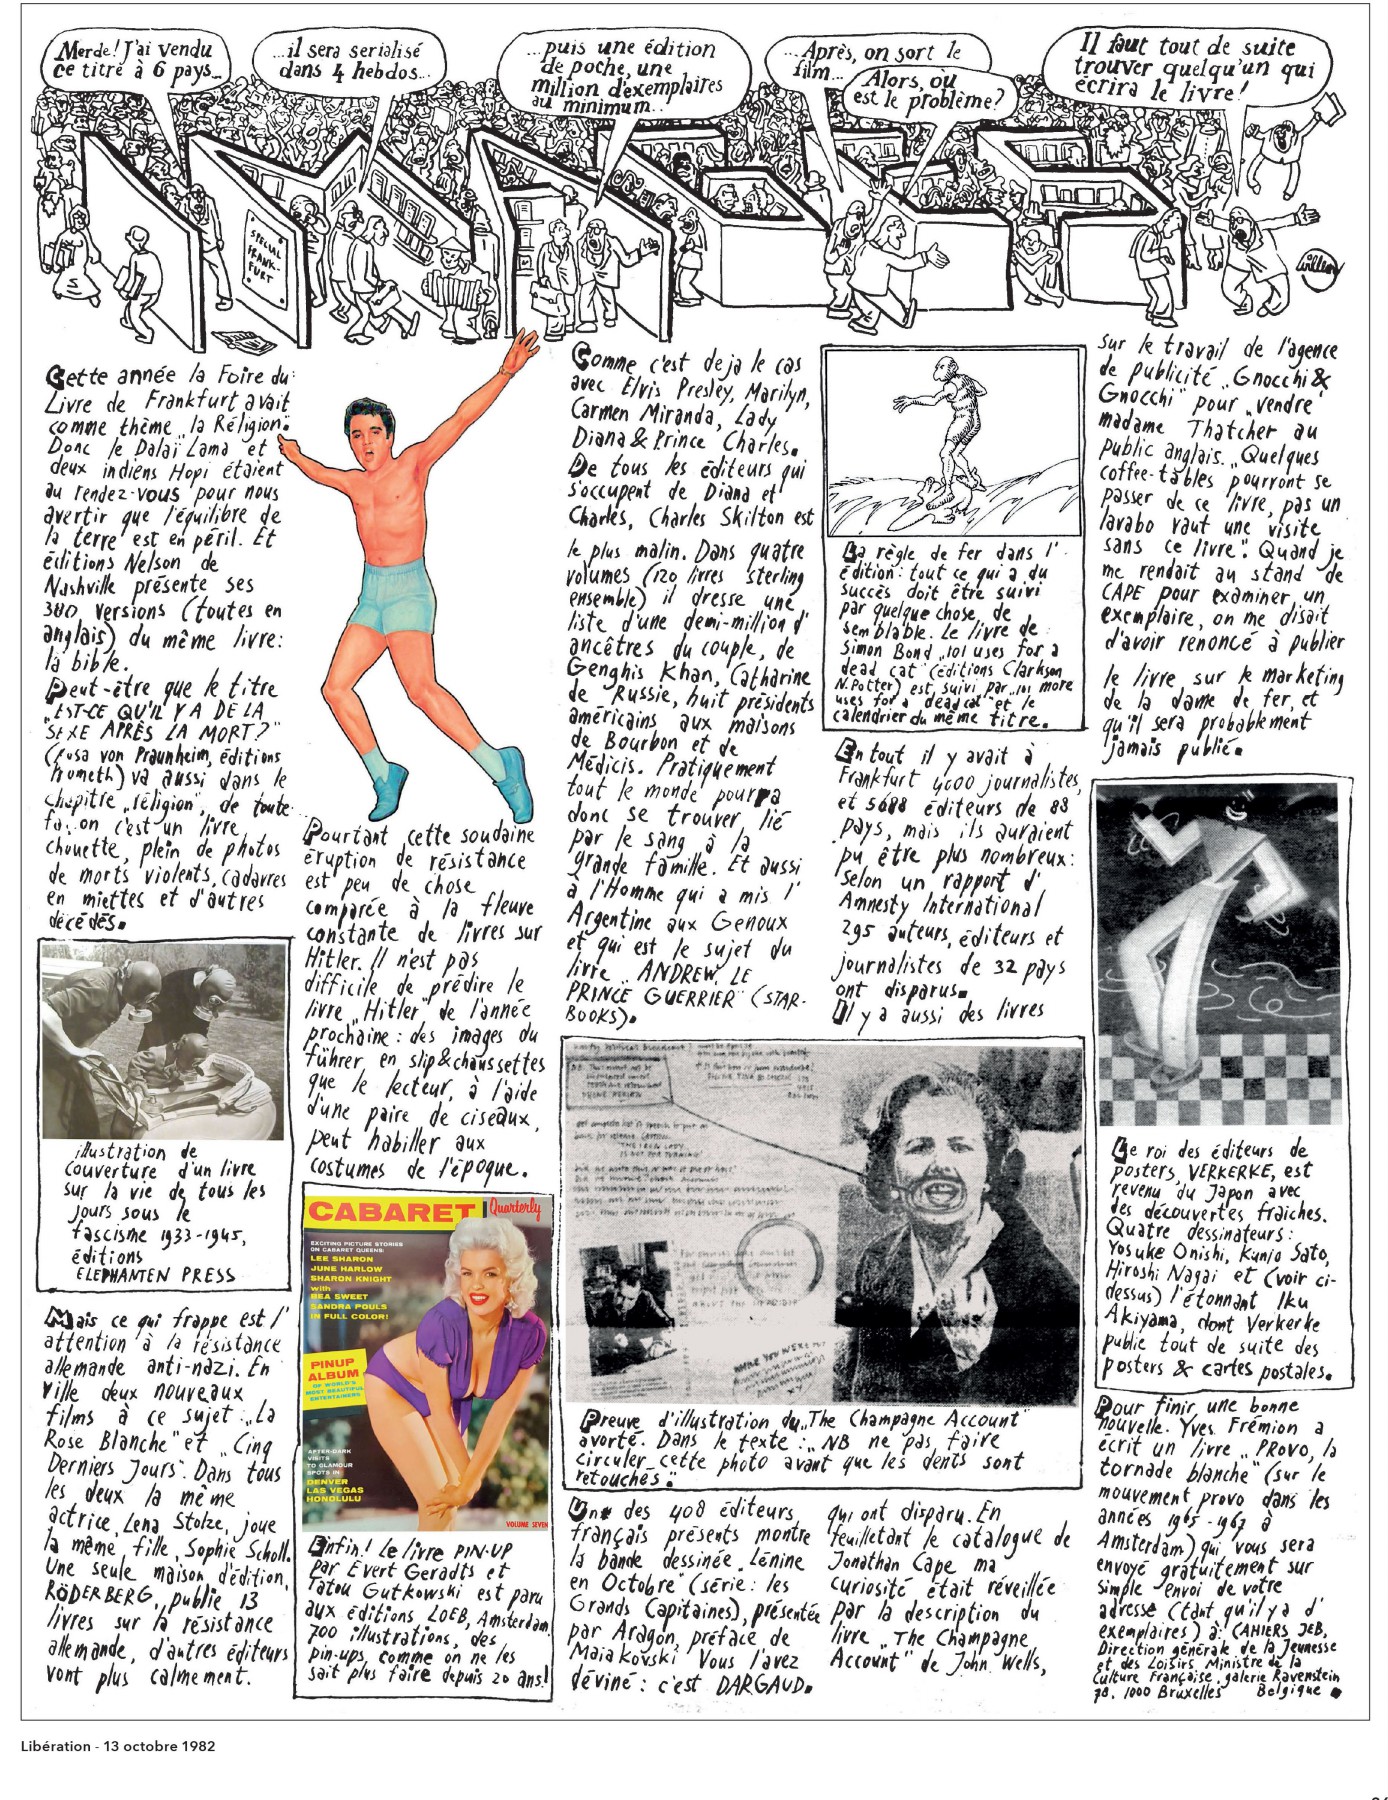 Merde! J'ai vendu
ce titre à 6 pays...
...il sera serialisé
dans 4 hebdos...
...puis une édition
de poche, une
million d'exemplaires
au minimum...
...Après, on sort le
film...
Alors, où
est le problème?
Il faut tout de suite
trouver quelqu'un qui
écrira le livre!
SPECIAL
FRANK-
FURT
Willem
Cette année la Foire du
Livre de Frankfurt avait
comme thème „la Réligion".
Donc le Dalaï Lama et
deux indiens Hopi étaient
au rendez-vous pour nous
avertir que l'équilibre de
la terre est en péril. Et
éditions Nelson de
Nashville présente ses
380 versions (toutes en
anglais) du même livre:
la bible.
Peut-être que le titre
„EST-CE QU'IL Y A DE LA
SEXE APRÈS LA MORT?"
(Rosa von Praunheim, éditions
Prometh) va aussi dans le
chapitre „réligion", de toute
façon c'est un livre
chouette, plein de photos
de morts violents, cadavres
en miettes et d'autres
décédés.
illustration de
couverture d'un livre
sur la vie de tous les
jours sous le
fascisme 1933-1945,
éditions
ELEPHANTEN PRESS
Mais ce qui frappe est l'
attention à la résistance
allemande anti-nazi. En
ville deux nouveaux
films à ce sujet „La
Rose Blanche" et „Cinq
Derniers Jours". Dans tous
les deux la même
actrice, Lena Stolze, joue
la même fille, Sophie Scholl.
Une seule maison d'édition,
RÖDERBERG, publie 13
livres sur la résistance
allemande, d'autres éditeurs
vont plus calmement.
Pourtant cette soudaine
éruption de résistance
est peu de chose
comparée à la fleuve
constante de livres sur
Hitler. Il n'est pas
difficile de prédire le
livre „Hitler" de l'année
prochaine: des images du
Führer en slip & chaussettes
que le lecteur, à l'aide
d'une paire de ciseaux,
peut habiller aux
costumes de l'époque.
CABARET Quarterly
EXCITING PICTURE STORIES
ON CABARET QUEENS:
LEE SHARON
JUNE HARLOW
SHARON KNIGHT
with
BEA SWEET
SANDRA POULS
IN FULL COLOR!
PINUP
ALBUM
OF WORLD'S
MOST BEAUTIFUL
ENTERTAINERS
AFTER-DARK
VISITS
TO GLAMOUR
SPOTS IN
DENVER
LAS VEGAS
HONOLULU
VOLUME SEVEN
Enfin! Le livre PIN-UP
par Evert Geradts et
Tatou Gutkowski est paru
aux éditions LOEB, Amsterdam.
700 illustrations, des
pin-ups comme on ne les
sait plus faire depuis 20 ans!
Comme c'est deja le cas
avec Elvis Presley, Marilyn,
Carmen Miranda, Lady
Diana & Prince Charles.
De tous les éditeurs qui
s'occupent de Diana et
Charles, Charles Skilton est
le plus malin. Dans quatre
volumes (120 livres sterling
ensemble) il dresse une
liste d'une demi-million d'
ancêtres du couple, de
Genghis Khan, Catharine
de Russie, huit présidents
américains aux maisons
de Bourbon et de
Médicis. Pratiquement
tout le monde pourra
donc se trouver lié
par le sang à la
grande famille. Et aussi
à l'Homme qui a mis l'
Argentine aux Genoux
et qui est le sujet du
livre „ANDREW, LE
PRINCE GUERRIER" (STAR-
BOOKS).
La règle de fer dans l'
édition: tout ce qui a du
succès doit être suivi
par quelque chose de
semblable. Le livre de
Simon Bond „101 uses for a
dead cat" (éditions Clarkson
N. Potter) est suivi par „101 more
uses for a dead cat" et le
calendrier du même titre.
En tout il y avait à
Frankfurt 4000 journalistes,
et 5688 éditeurs de 88
pays, mais ils auraient
pu être plus nombreux:
selon un rapport d'
Amnesty International
295 auteurs, éditeurs et
journalistes de 32 pays
ont disparus.
Il y a aussi des livres
Preuve d'illustration du „The Champagne Account"
avorté. Dans le texte: „NB ne pas faire
circuler cette photo avant que les dents sont
retouchés".
Une des 408 éditeurs
français présents montre
la bande dessinée „Lénine
en Octobre" (série: les
Grands Capitaines), présentée
par Aragon, préface de
Maiakovski Vous l'avez
déviné: c'est DARGAUD.
qui ont disparu. En
feuilletant le catalogue de
Jonathan Cape ma
curiosité était réveillée
par la description du
livre „The Champagne
Account" de John Wells,
sur le travail de l'agence
de publicité „Gnocchi &
Gnocchi" pour „vendre"
madame Thatcher au
public anglais. „Quelques
coffee-tables pourront se
passer de ce livre, pas un
lavabo vaut une visite
sans ce livre". Quand je
me rendait au stand de
CAPE pour examiner un
exemplaire, on me disait
d'avoir renoncé à publier
le livre sur le marketing
de la dame de fer, et
qu'il sera probablement
jamais publié.
Le roi des éditeurs de
posters, VERKERKE, est
revenu du Japon avec
des découvertes fraiches.
Quatre dessinateurs:
Yosuke Onishi, Kunio Sato,
Hiroshi Nagai et (voir ci-
dessus) l'étonnant Iku
Akiyama, dont Verkerke
public tout de suite des
posters & cartes postales.
Pour finir, une bonne
nouvelle. Yves Frémion a
écrit un livre „PROVO, la
tornade blanche" (sur le
mouvement provo dans les
années 1965-1967 à
Amsterdam) qui vous sera
envoyé gratuitement sur
simple envoi de votre
adresse (tant qu'il y a d'
exemplaires) à: CAHIERS JEB,
Direction générale de la Jeunesse
et des Loisirs, Ministre de la
Culture Française, galerie Ravenstein
78, 1000 Bruxelles Belgique
Libération - 13 octobre 1982